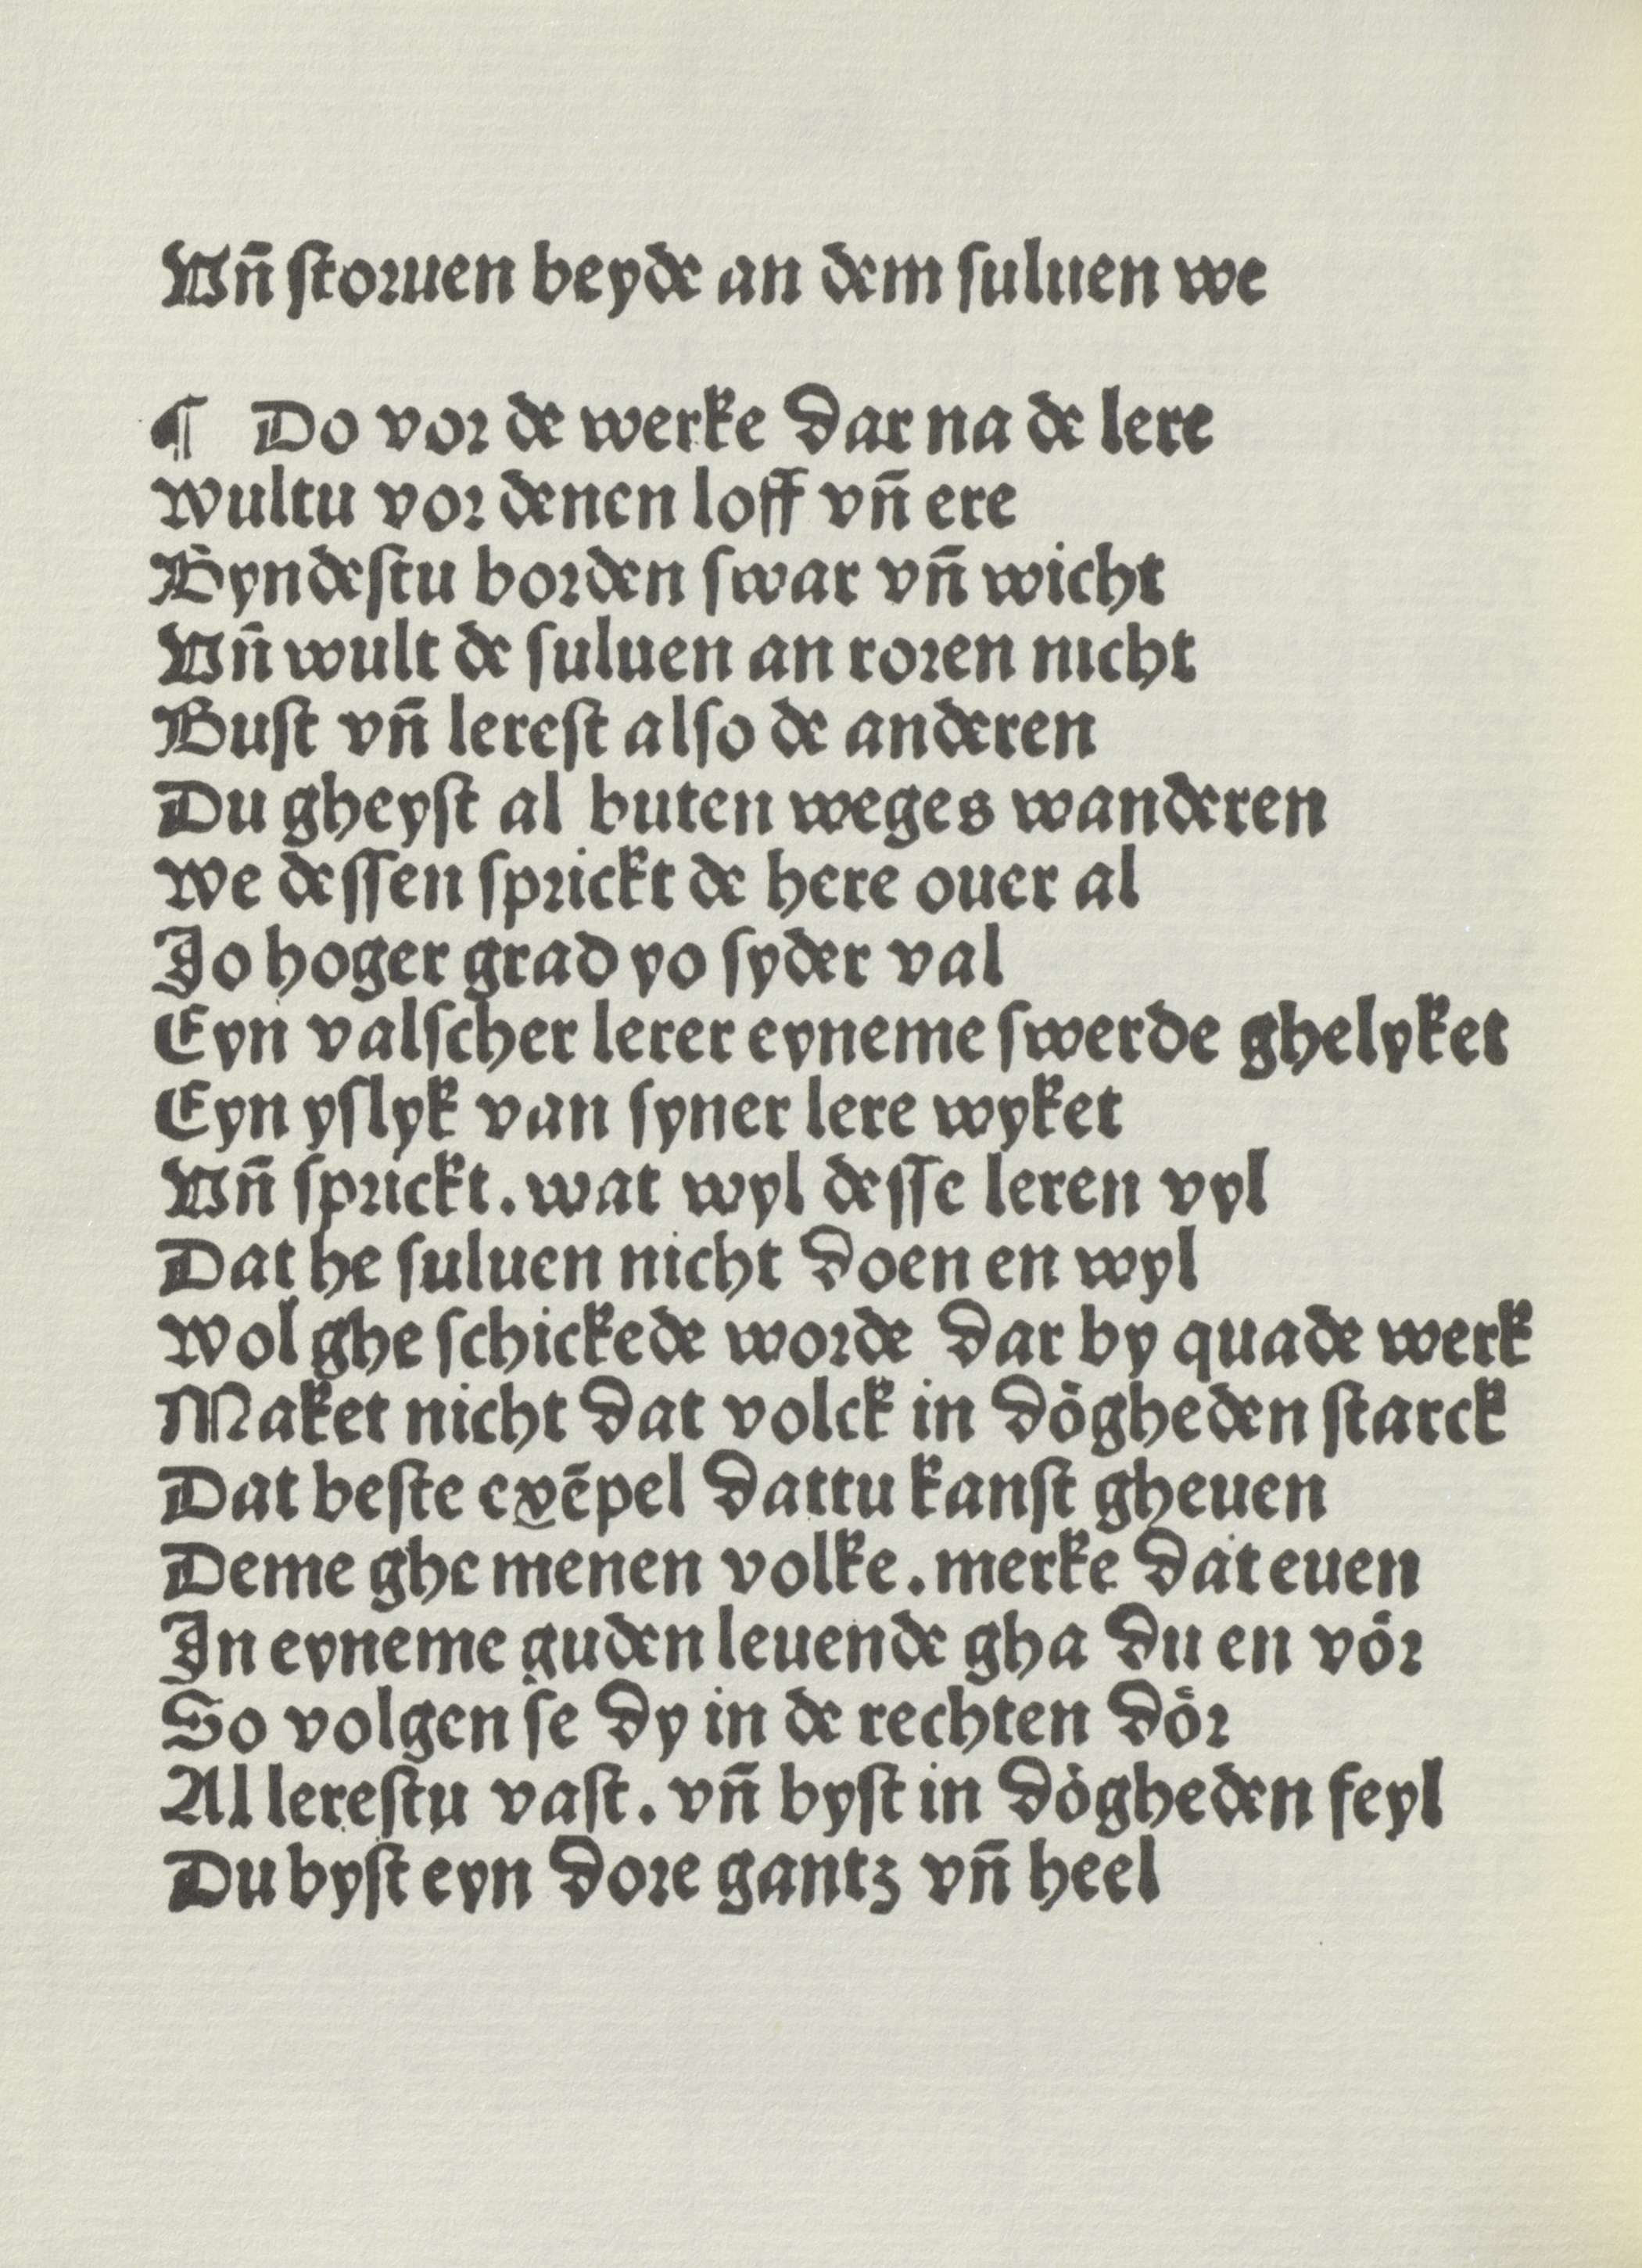 Vn̄ ſtoꝛuen beyde an dem ſuluen we
¶ Do voꝛ de werke dar na de lere
wultu voꝛ denen loff vn̄ ere
Byndeſtu boꝛden ſwar vn̄ wicht
Vn̄ wult de ſuluen an roꝛen nicht
Buſt vn̄ lereſt alſo de anderen
Du gheyſt al buten weges wanderen
we deſſen ſpꝛickt de here ouer al
Jo hoger grad yo ſyder val
Eyn valſcher lerer eyneme ſwerde ghelyket
Eyn yſlyk van ſyner lere wyket
Vn̄ ſpꝛickt. wat wyl deſſe leren vyl
Dat he ſuluen nicht doen en wyl
wol ghe ſchickede woꝛde dar by quade werk
Maket nicht dat volck in doͤgheden ſtarck
Dat beſte exēpel dattu kanſt gheuen
Deme ghe menen volke. merke dat euen
In eyneme guden leuende gha du en voͤꝛ
So volgen ſe dy in de rechten doͤꝛ
Al lereſtu vaſt. vn̄ byſt in doͤgheden feyl
Du byſt eyn doꝛe gantz vn̄ heel